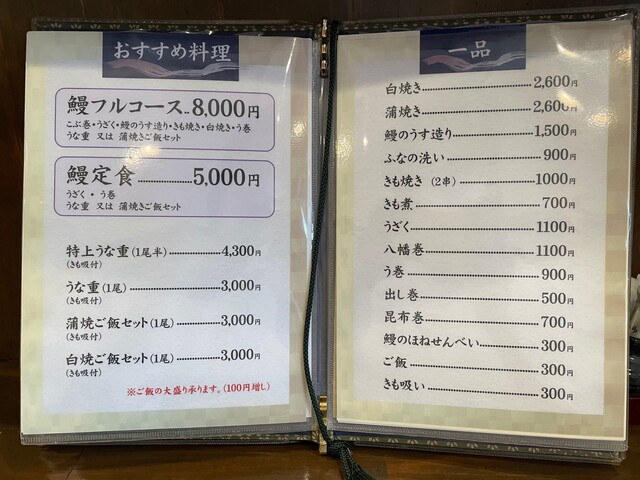 おすすめ料理
鰻フルコース..8,000円
こぶ巻・うざく・鰻のうす造り・きも焼き・白焼き・う巻
うな重 又は 蒲焼きご飯セット
鰻定食............5,000円
うざく ・ う巻
うな重 又は 蒲焼きご飯セット
特上うな重(1尾半)............4,300円
(きも吸付)
うな重(1尾)............3,000円
(きも吸付)
蒲焼ご飯セット(1尾)............3,000円
(きも吸付)
白焼ご飯セット(1尾)............3,000円
(きも吸付)
※ご飯の大盛り承ります。(100円増し)
一品
白焼き............2,600円
蒲焼き............2,600円
鰻のうす造り............1,500円
ふなの洗い............900円
きも焼き (2串)............1000円
きも煮............700円
うざく............1100円
八幡巻............1100円
う巻............900円
出し巻............500円
昆布巻............700円
鰻のほねせんべい............300円
ご飯............300円
きも吸い............300円